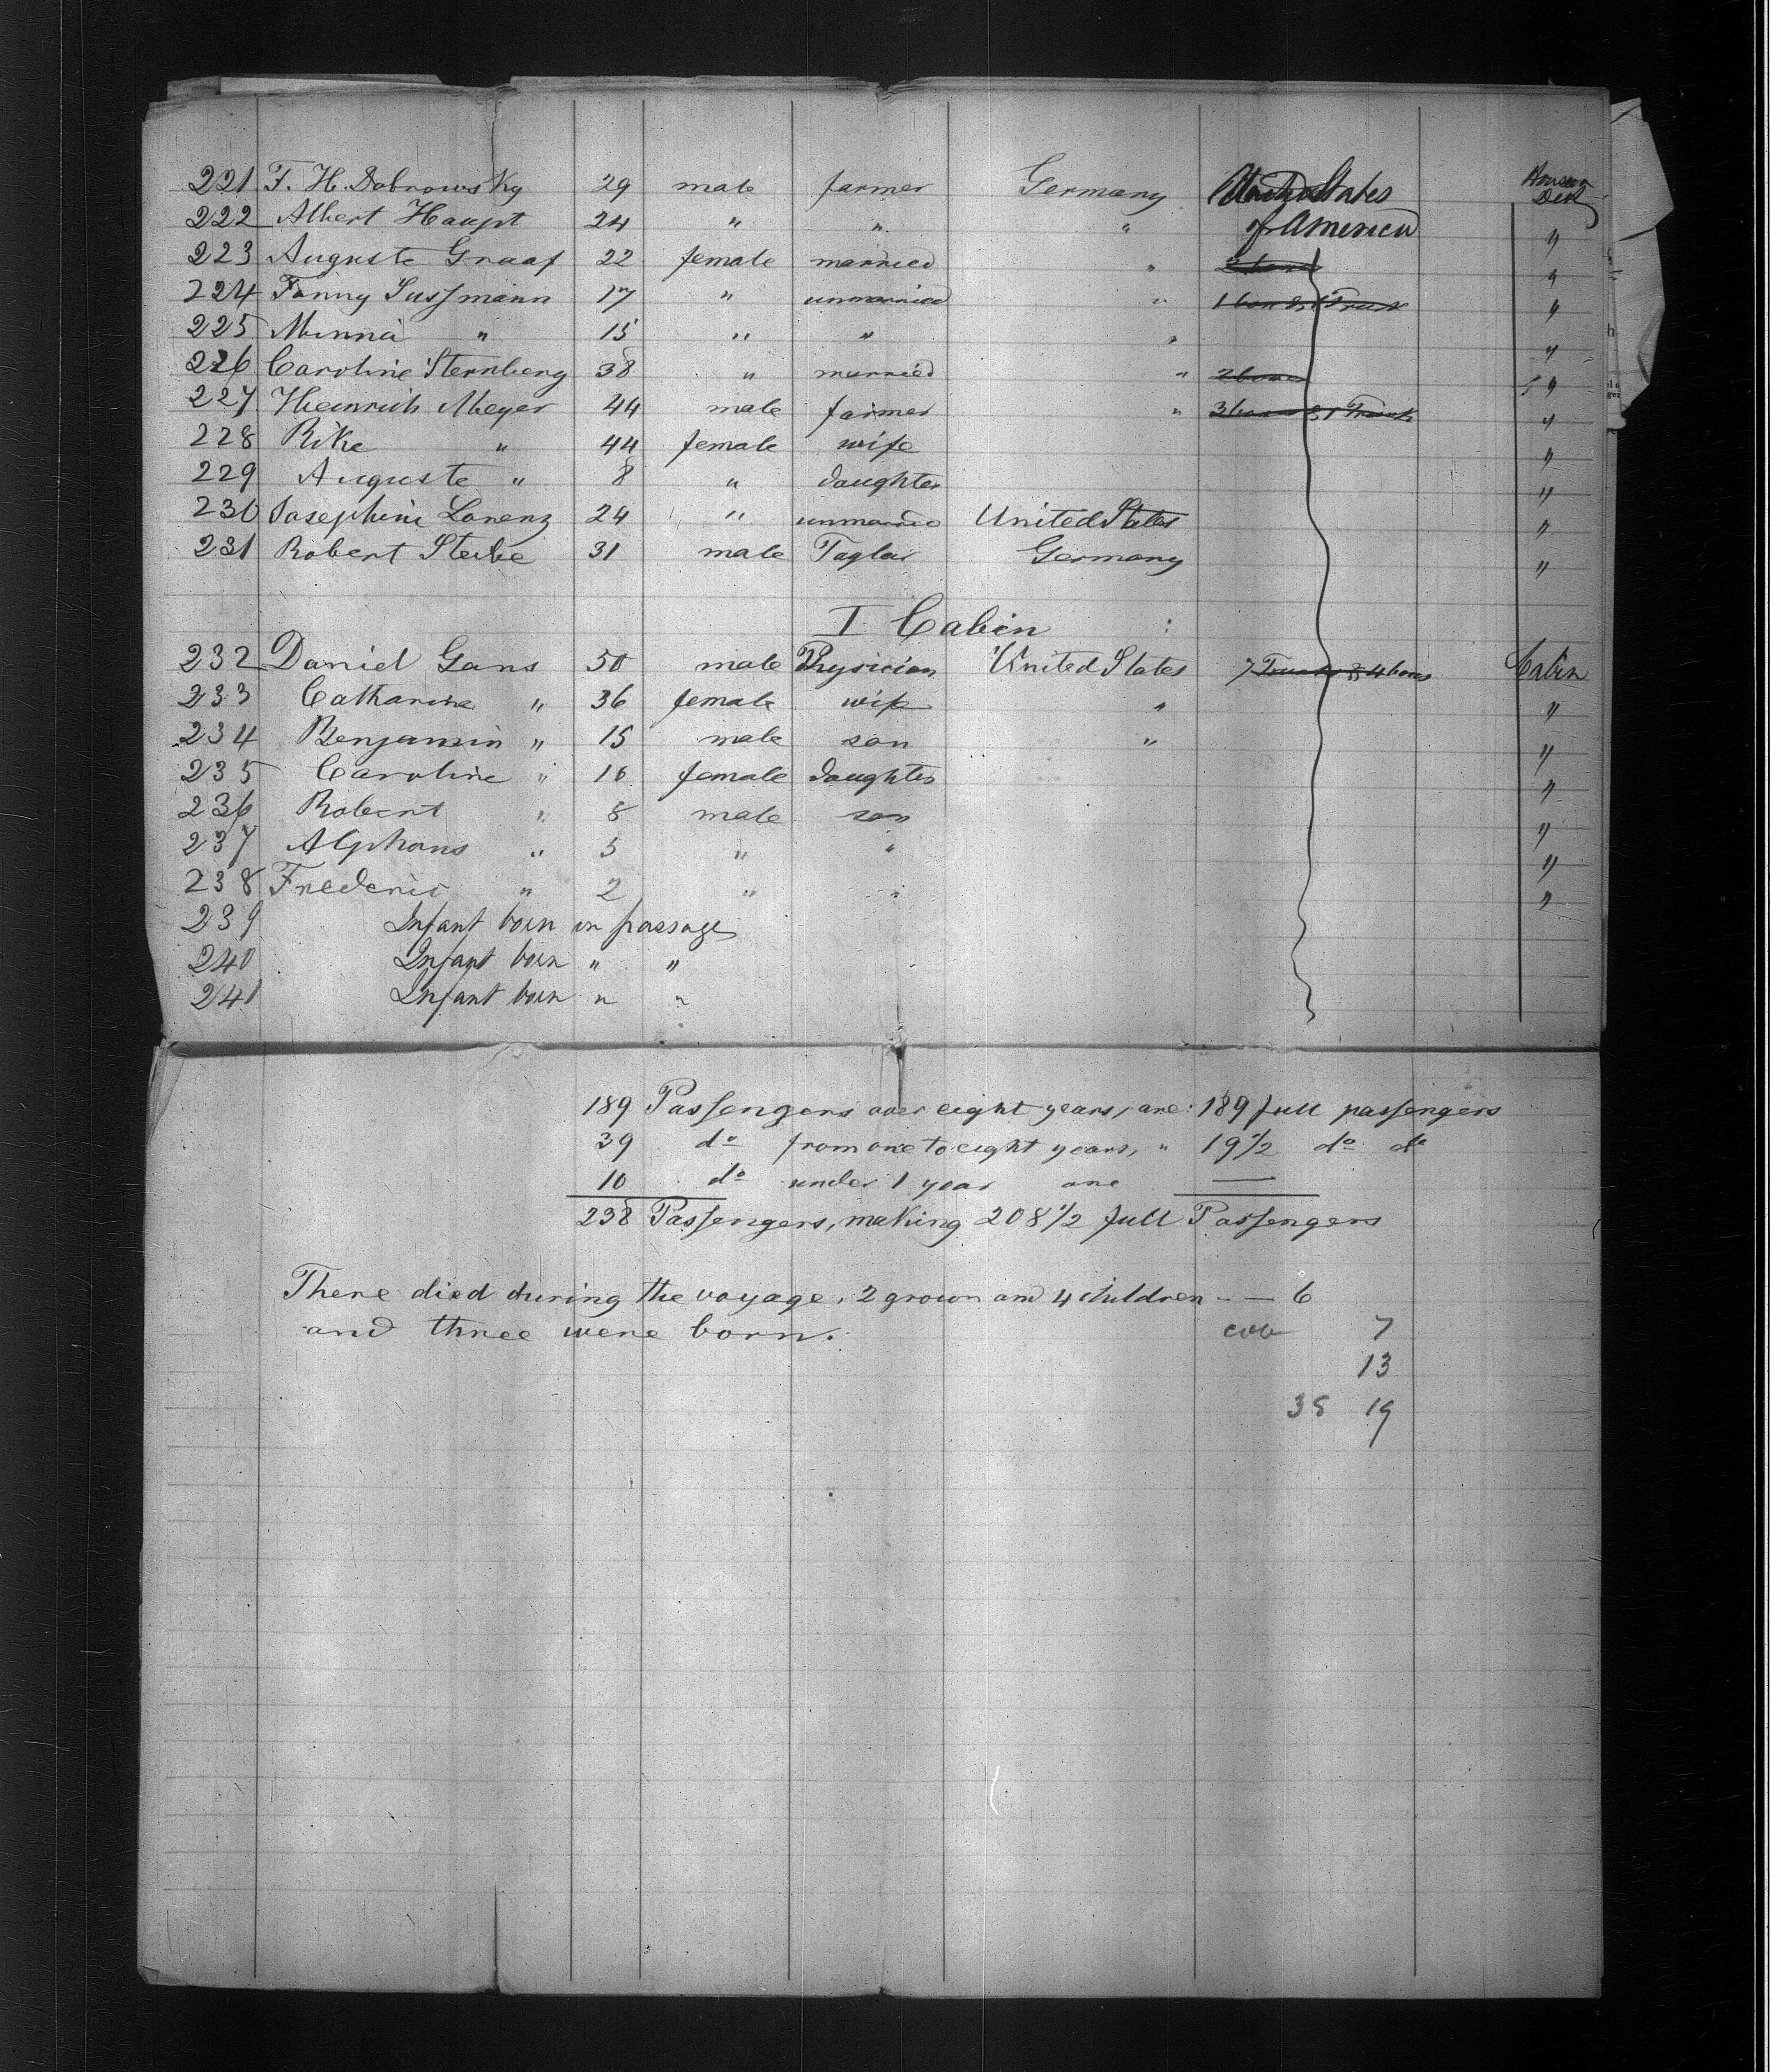 221 F. H. Dobrowsky 29 male farmer Germany United States
222 Albert Haupt 24 " " " of America "
223 Auguste Graaf 22 female married " 2 boxes "
224 Fanny Sussmann 17 " unmarried " 1 box & 1 Trunk "
225 Minna " 15 " " " "
226 Caroline Sternberg 38 " married " 2 boxes "
227 Heinrich Meyer 44 male farmer " 3 boxes & 1 Trunk "
228 Rike " 44 female wife "
229 Auguste " 8 " daughter "
230 Josephine Lorenz 24 " unmarried United States "
231 Robert Steibe 31 male Taylor Germany "
I Cabin
232 Daniel Gans 50 male Physician United States 7 Trunks & 4 boxes Cabin
233 Catharine " 36 female wife " "
234 Benjamin " 15 male son " "
235 Caroline " 10 female daughter "
236 Robert " 8 male son "
237 Alphons " 5 " " "
238 Frederic " 2 " " "
239 Infant born on passage
240 Infant born " "
241 Infant born " "
189 Passengers over eight years, are: 189 full passengers
39 do from one to eight years, " 19 1/2 do do
10 do under 1 year are —
238 Passengers, making 208 1/2 full Passengers
There died during the voyage, 2 grown and 4 children - — 6
and three were born. 7
13
38 19